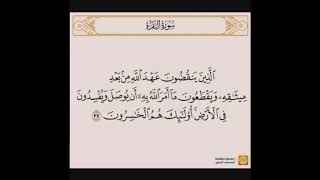 سُورَةُ البَقَرَةِ
الَّذِينَ يَنقُضُونَ عَهْدَ اللَّهِ مِنۢ بَعْدِ
مِيثَٰقِهِۦ وَيَقْطَعُونَ مَآ أَمَرَ اللَّهُ بِهِۦٓ أَن يُوصَلَ وَيُفْسِدُونَ
فِي الْأَرْضِ ۚ أُو۟لَٰٓئِكَ هُمُ الْخَٰسِرُونَ ٢٧